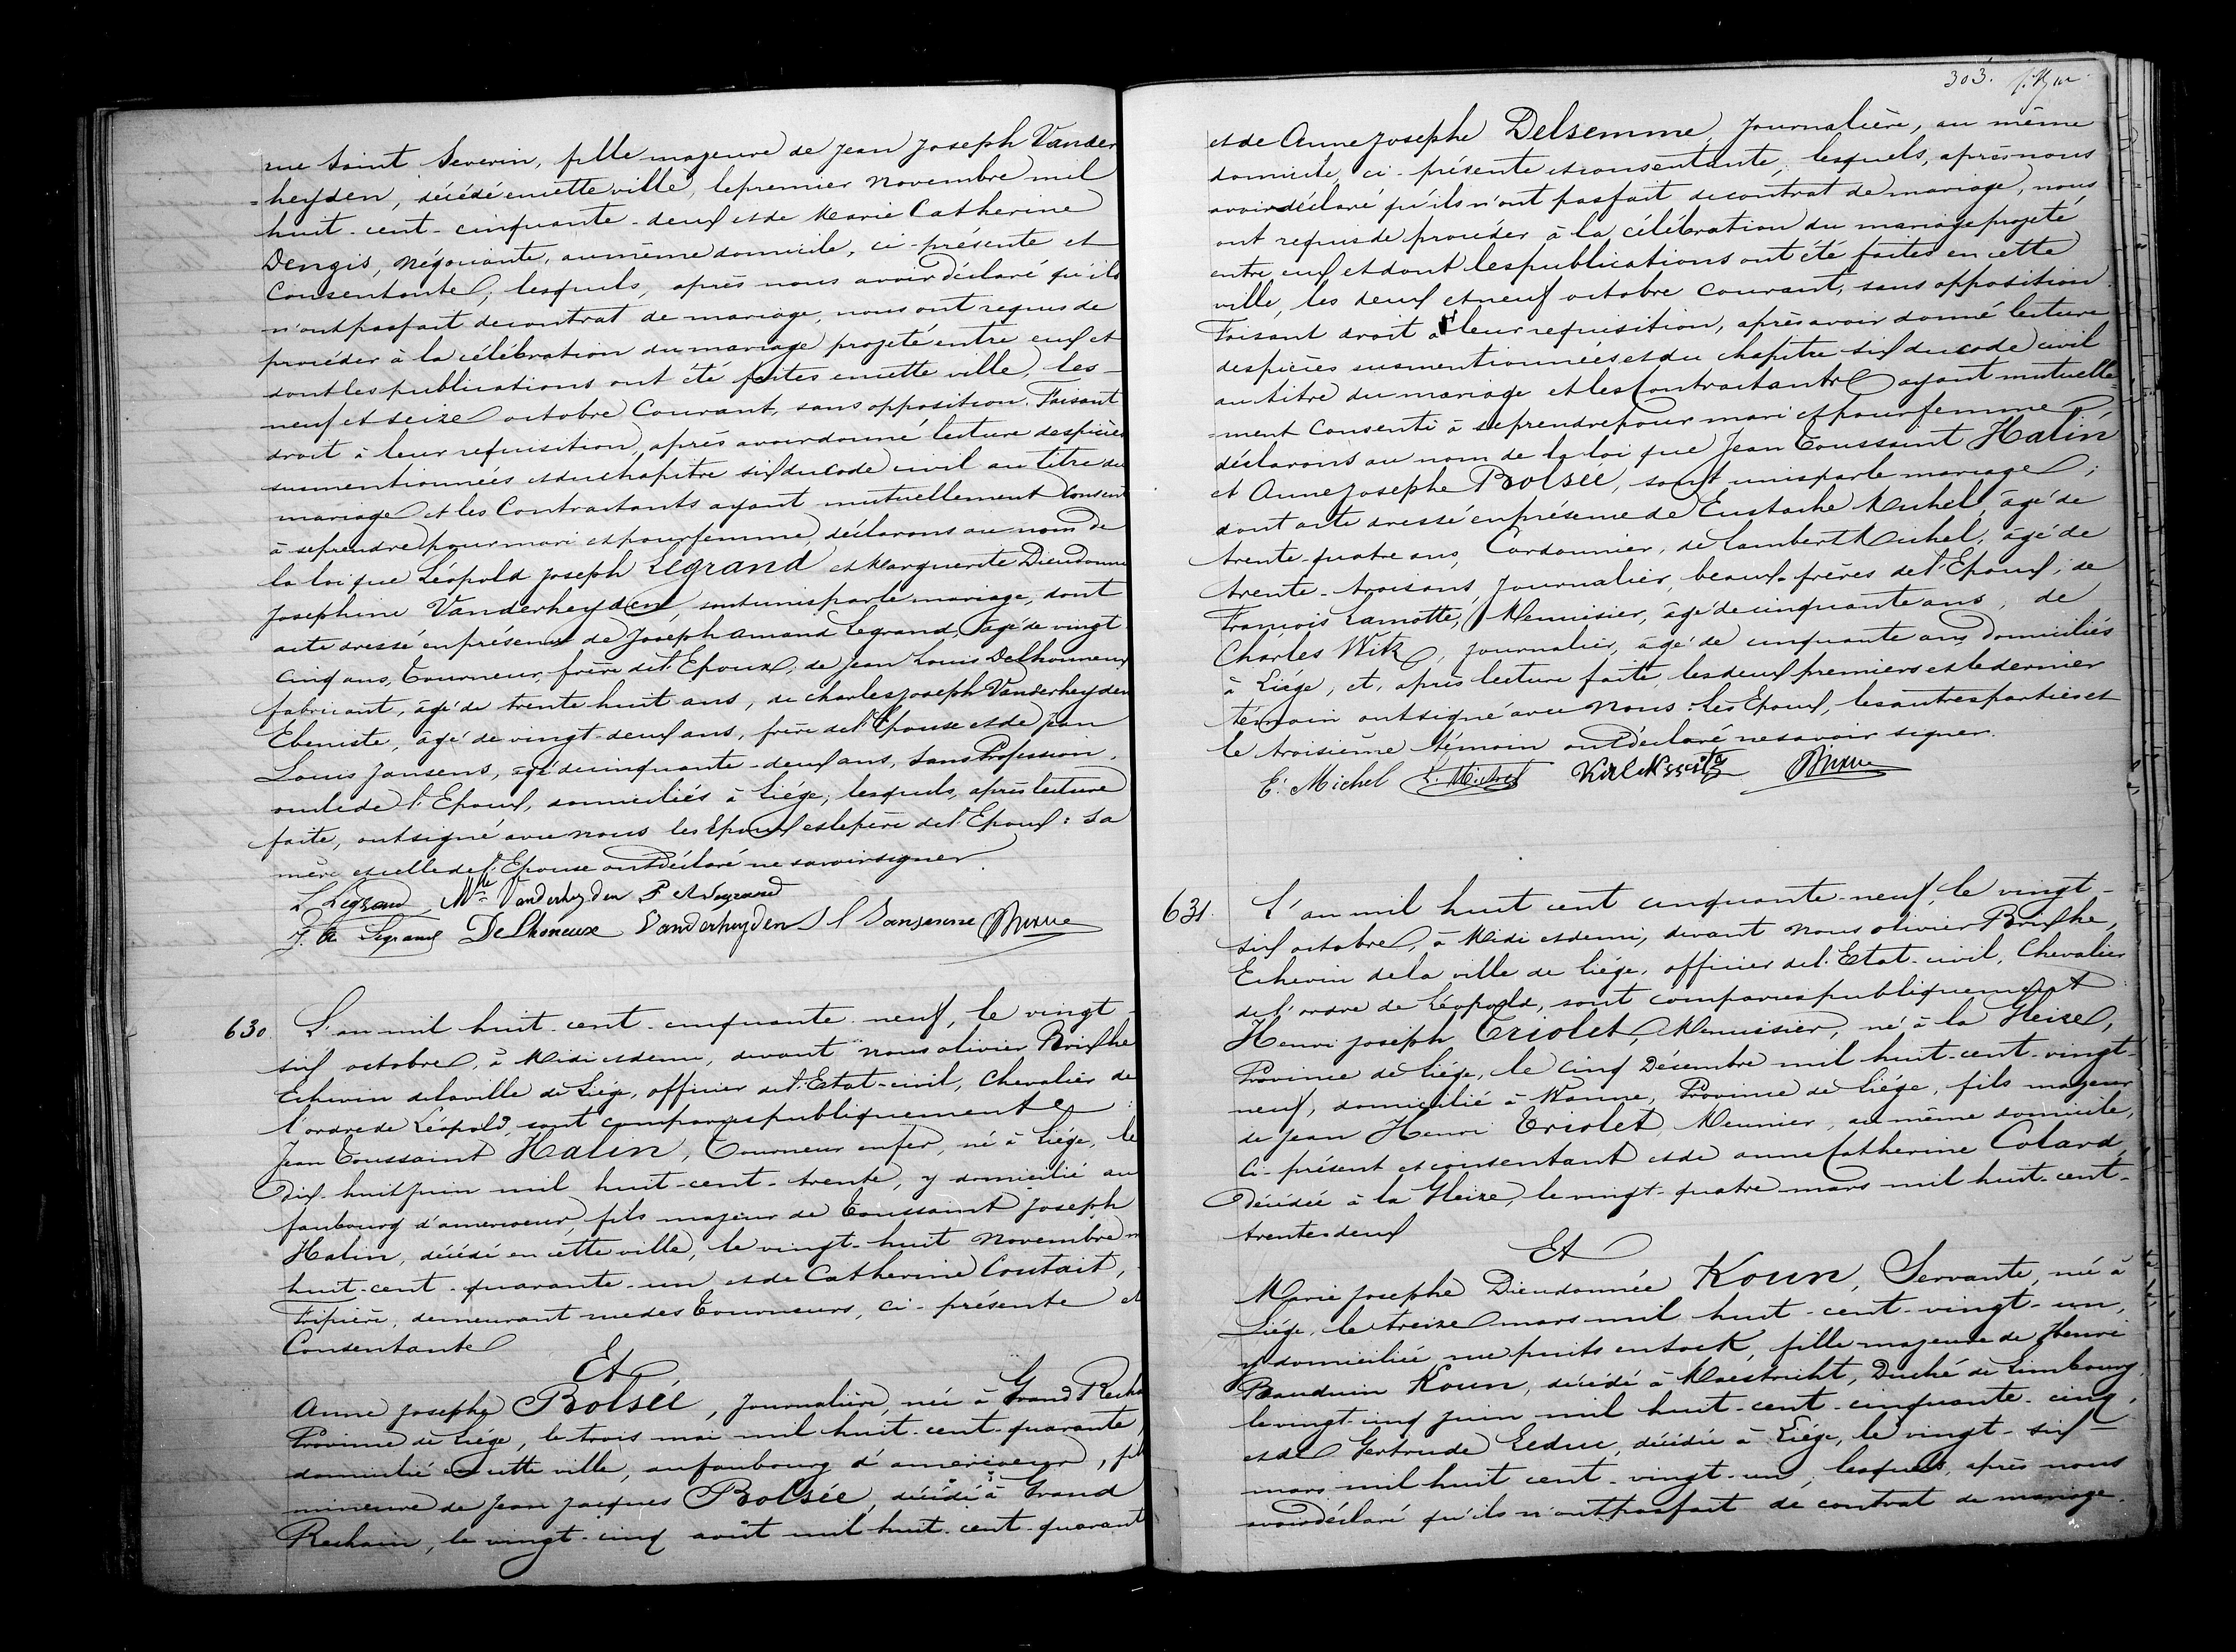 rue Saint Severin, fille majeure de Jean Joseph Vander
=heyden, décédé en cette ville, le premier Novembre mil
huit-cent-cinquante-deux et de Marie Catherine
Dengis, Négociante, au même domicile, ci-présente et
Consentante; lesquels, après nous avoir déclaré qu'ils
n'ont pas fait de contrat de mariage, nous ont requis de
procéder à la célébration du mariage projeté entre eux et
dont les publications ont été faites en cette ville, les
neuf et seize octobre Courant, sans opposition. Faisant
droit à leur requisition, après avoir donné lecture des pièces
susmentionnées et du chapitre six du Code civil au titre du
mariage et les Contractants ayant mutuellement consenti
à se prendre pour mari et pour femme, déclarons au nom de
la loi que Léopold Joseph Legrand et Marguerite Dieudonnée
Josephine Vanderheyden, sont unis par le mariage, dont
acte dressé en présence de Joseph Amand Legrand, âgé de vingt
cinq ans, Tourneur, frère de l'Epoux; de Jean Louis Delhoumeux
fabricant, âgé de trente huit ans, de Charles Joseph Vanderheyden
Ebeniste, âgé de vingt-deux ans, frère de l'Epouse et de Jean
Louis Jansens, âgé de cinquante-deux ans, Sans Profession,
oncle de l'Epoux, domiciliés à Liége; lesquels, après lecture
faite, ont signé avec nous les Epoux et le père de l'Epoux: sa
mère et celle de l'Epouse ont déclaré ne savoir signer.
L Legrand Mlle Vanderheyden P A Legrand
J. A. Legrand Delhoneux Vanderheyden J L Jansenne
630. L'an mil huit-cent-cinquante-neuf, le vingt-
six octobre, à Midi et demi, devant nous olivier Brixhe
Echevin de la ville de Liége, officier de l'Etat-civil, Chevalier de
l'ordre de Léopold, sont comparus publiquement:
Jean Toussaint Halin, Tourneur en fer, né à Liége, le
dix-huit juin mil huit-cent-trente, y domicilié au
faubourg d'amercoeur, fils majeur de Toussaint Joseph
Halin, décédé en cette ville, le vingt-huit Novembre m
huit-cent-quarante-un et de Catherine Coutait,
Fripière, demeurant rue des Tourneurs, ci-présente et
Consentante
Et
Anne Josephe Bolsée, Journalière, née à Grand Recha
Province de Liége, le trois mai mil huit-cent-quarante,
domicilié en cette ville, au faubourg d'amercoeur, fil
mineure de Jean Jacques Bolsée, décédé à Grand
Rechain, le vingt-cinq août mil huit-cent-quarant
303.
et de Anne Josephe Delsemme, Journalière, au même
domicile, ci-présente et consentante, lesquels, après nous
avoir déclaré qu'ils n'ont pas fait de contrat de mariage, nous
ont requis de procéder à la célébration du mariage projeté
entre eux et dont les publications ont été faites en cette
ville, les deux et neuf octobre courant, sans opposition.
Faisant droit à leur requisition, après avoir donné lecture
des pièces susmentionnées et du chapitre six du code civil
au titre du mariage et les Contractants ayant mutuelle=
=ment Consenti à se prendre pour mari et pour femme,
déclarons au nom de la loi que Jean Toussaint Halin
et Anne Josephe Bolsée, sont unis par le mariage;
dont acte dressé en présence de Eustache Michel, âgé de
trente-quatre ans, Cordonnier, de Lambert Michel, âgé de
trente-trois ans, Journalier, beaux-frères de l'Epoux; de
François Lamotte, Menuisier, âgé de cinquante ans, de
Charles Witz, journalier, âgé de cinquante ans, domiciliés
à Liége, et, après lecture faite, les deux premiers et le dernier
témoin ont signé avec Nous: Les Epoux, les autres parties et
le troisième témoin ont déclaré ne savoir signer.
E. Michel L. Michel
631. L'an mil huit cent cinquante-neuf, le vingt-
six octobre, à Midi et demi, devant nous olivier Brixhe,
Echevin de la ville de Liége, officier de l'Etat-civil, Chevalier
de l'ordre de Léopold, sont comparus publiquement:
Henri Joseph Triolet, Menuisier, né à la Gleize,
Province de Liége, le cinq Décembre mil huit-cent-vingt-
neuf, domicilié à Wanne, Province de Liége, fils majeur
de Jean Henri Triolet, Meunier, au même domicile,
Ci-présent et consentant et de anne Catherine Colard,
Décédée à la Gleize, le vingt-quatre mars mil huit-cent-
trente-deux
Et
Marie Josephe Dieudonnée Koun, Servante, née à
Liége, le treize mars mil huit-cent-vingt-un,
y domiciliée, rue puits en sock, fille majeure de Henri
Bauduin Koun, décédé à Maestricht, Duché de Limbourg,
le vingt-cinq juin mil huit-cent-cinquante-cinq,
et de Gertrude Leduc, décédée à Liége, le vingt-six-
mars mil huit cent-vingt-un; lesquels, après nous
avoir déclaré qu'ils n'ont pas fait de contrat de mariage.